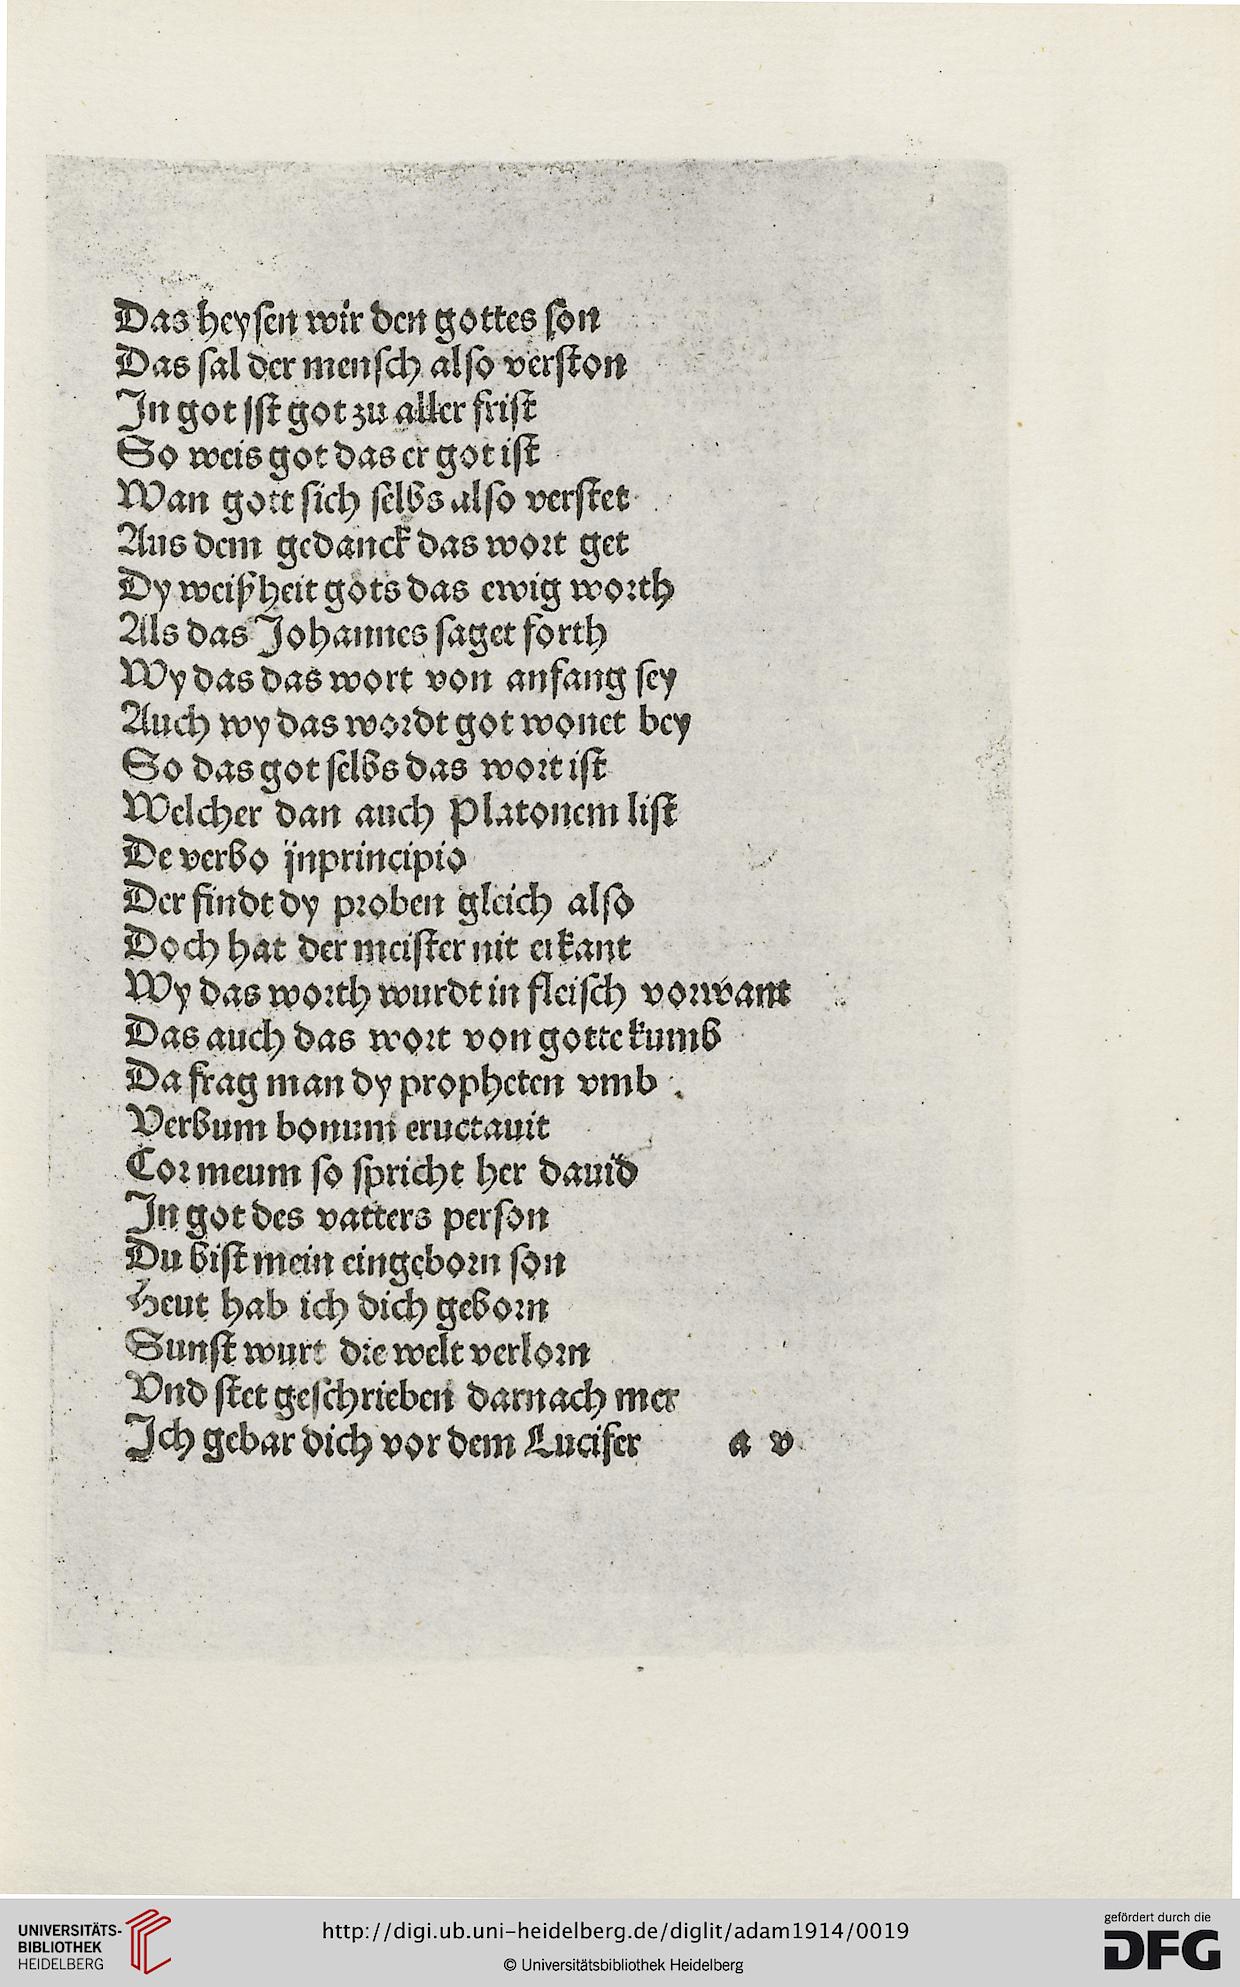 Das heysen wir den gottes son
Das sal der mensch also verston
Jn got jst got zu aller frist
So weis got das er got ist
Wan gott sich selbs also verstet
Aus dem gedanck das wort get
Dy weißheit gots das ewig worth
Als das Johannes saget forth
Wy das das wort von anfang sey
Auch wy das wordt got wonet bey
So das got selbs das wort ist
Welcher dan auch Platonem list
De verbo jnprincipio
Der findt dy proben gleich also
Doch hat der meister nit erkant
Wy das worth wurdt in fleisch vorwant
Das auch das wort von gotte kumb
Da frag man dy propheten vmb .
Verbum bonum eructauit
Cor meum so spricht her dauid
Jn got des vatters person
Du bist mein eingeborn son
Heut hab ich dich geborn
Sunst wurt die welt verlorn
Vnd stet geschrieben darnach mer
Jch gebar dich vor dem Lucifer a v
UNIVERSITÄTS-
BIBLIOTHEK
HEIDELBERG
http://digi.ub.uni-heidelberg.de/diglit/adam1914/0019
© Universitätsbibliothek Heidelberg
gefördert durch die
DFG